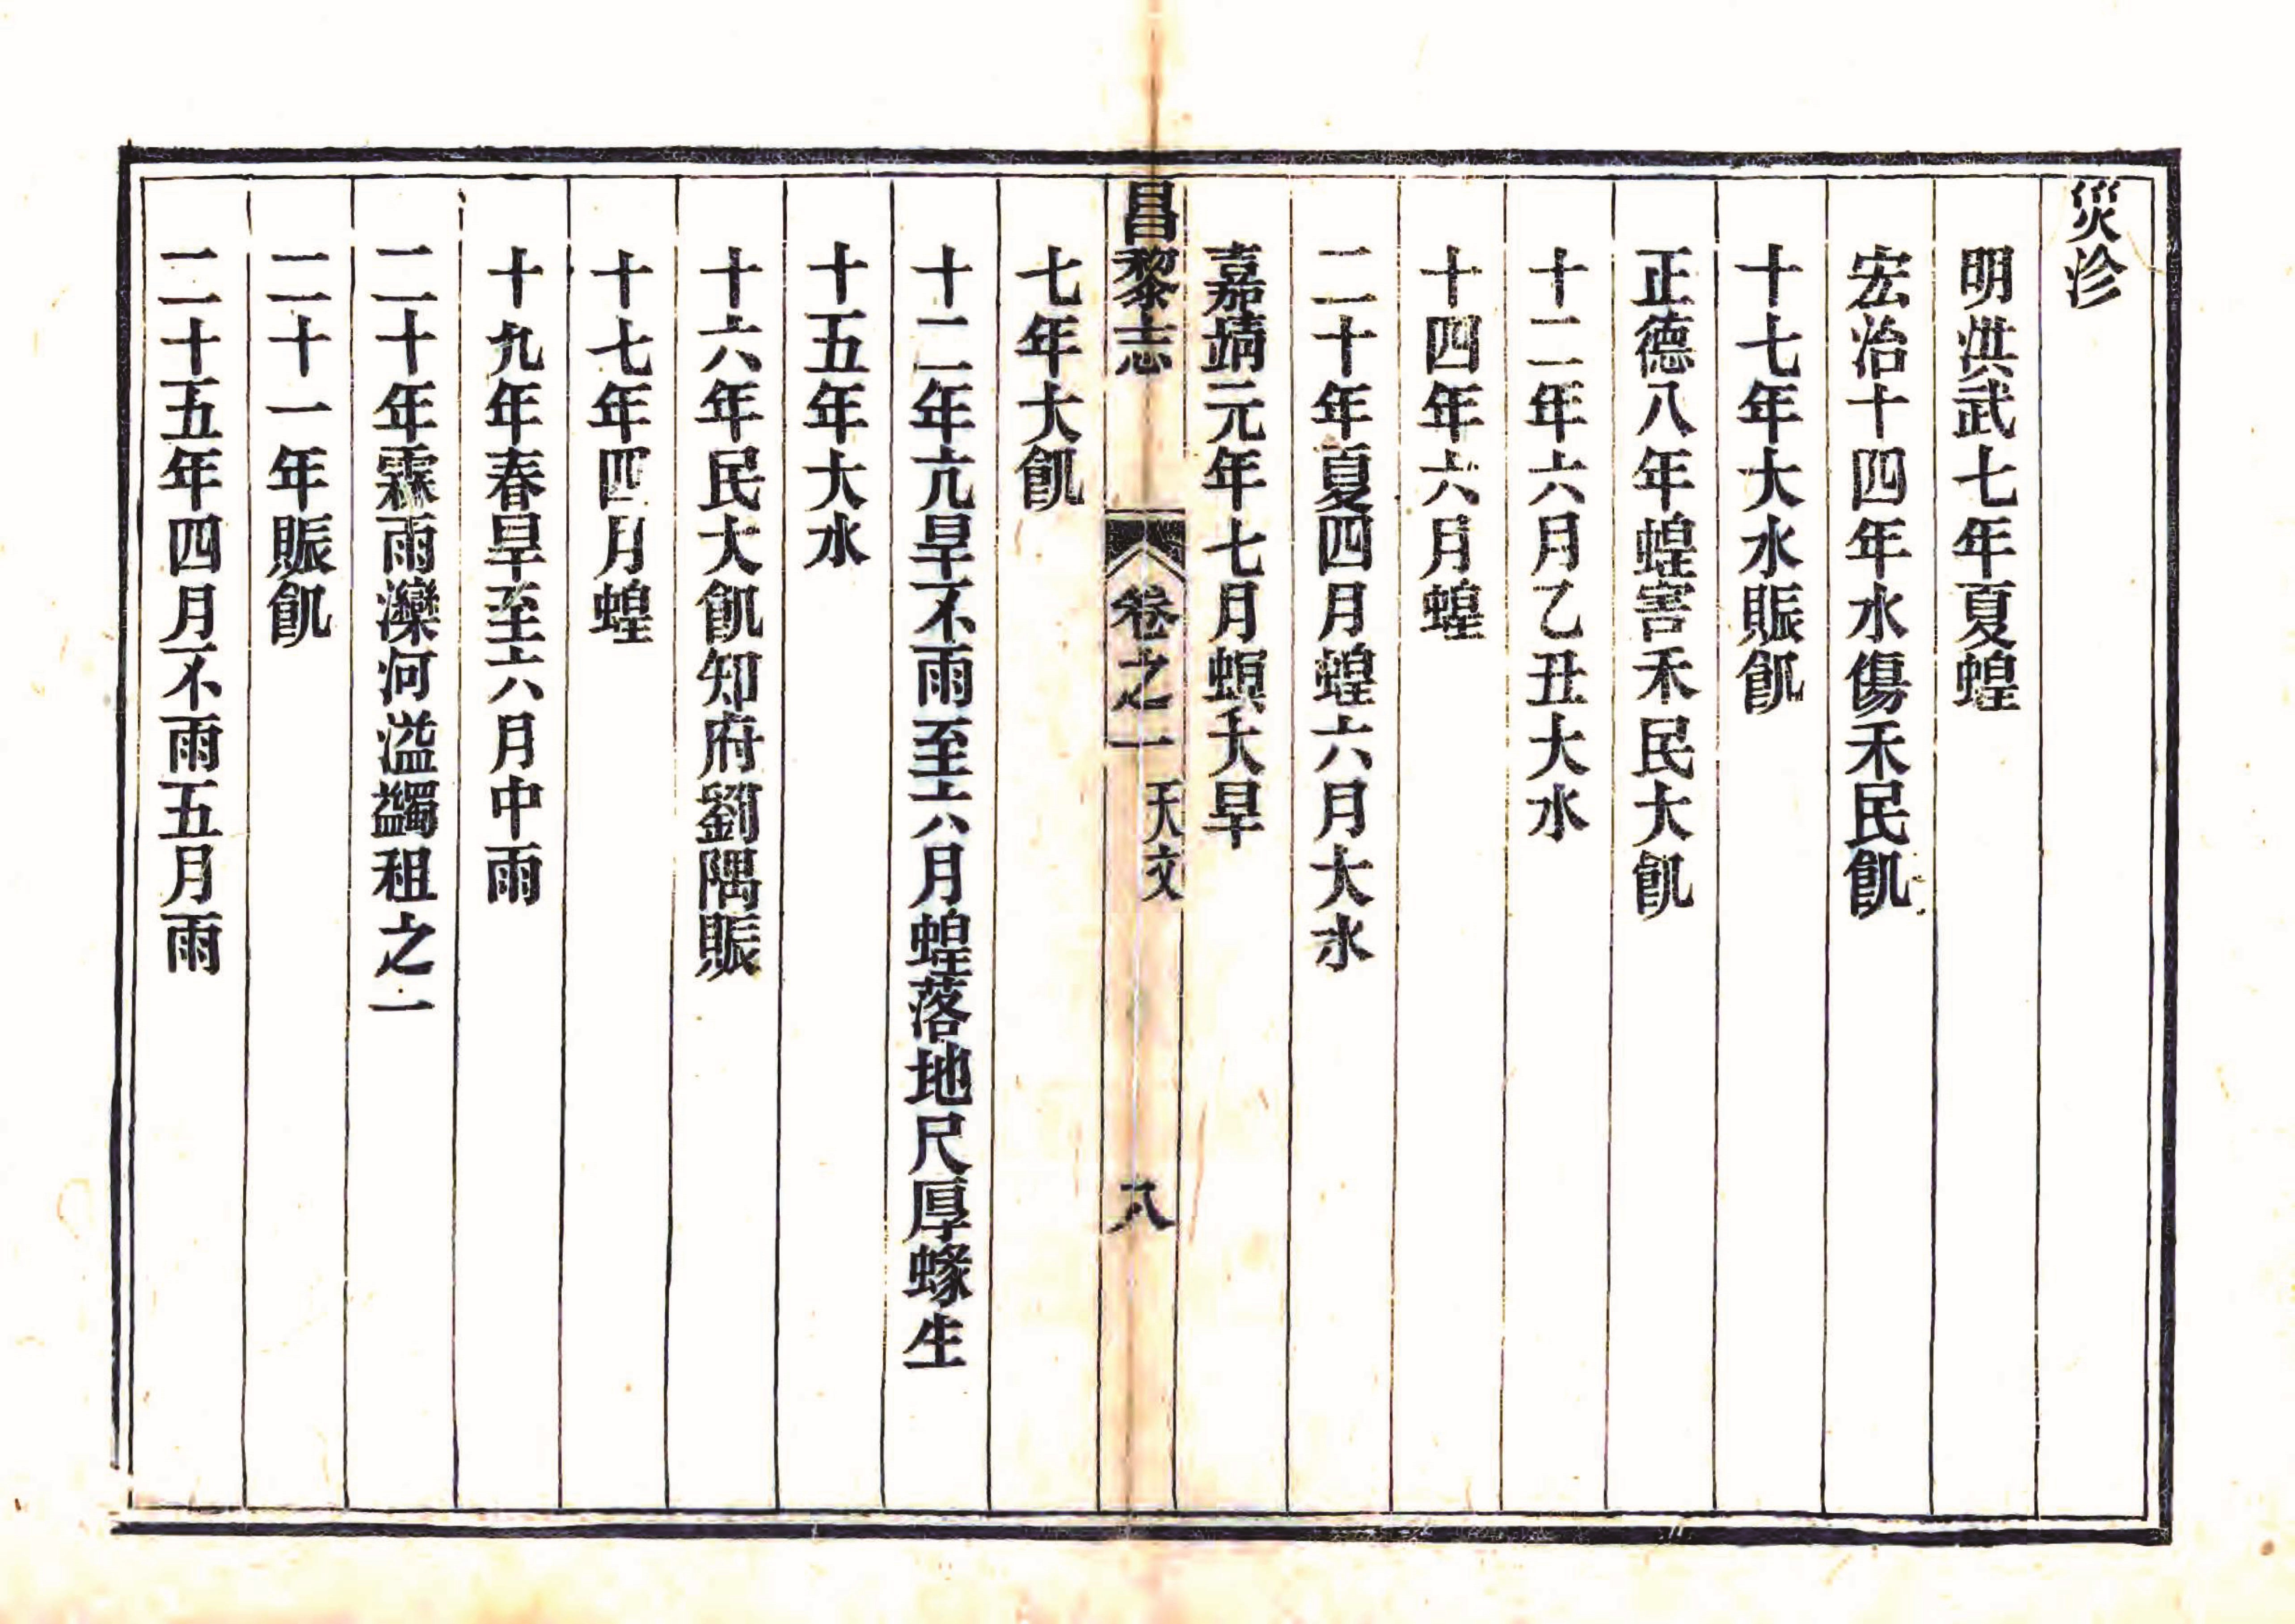 災沴
明洪武七年夏蝗
宏治十四年水傷禾民飢
十七年大水賑飢
正德八年蝗害禾民大飢
十二年六月乙丑大水
十四年六月蝗
二十年夏四月蝗六月大水
嘉靖元年七月螟大旱
昌黎志 卷之一 天文 八
七年大飢
十二年亢旱不雨至六月蝗落地尺厚蝝生
十五年大水
十六年民大飢知府劉隅賑
十七年四月蝗
十九年春旱至六月中雨
二十年霖雨灤河溢蠲租之一
二十一年賑飢
二十五年四月不雨五月雨